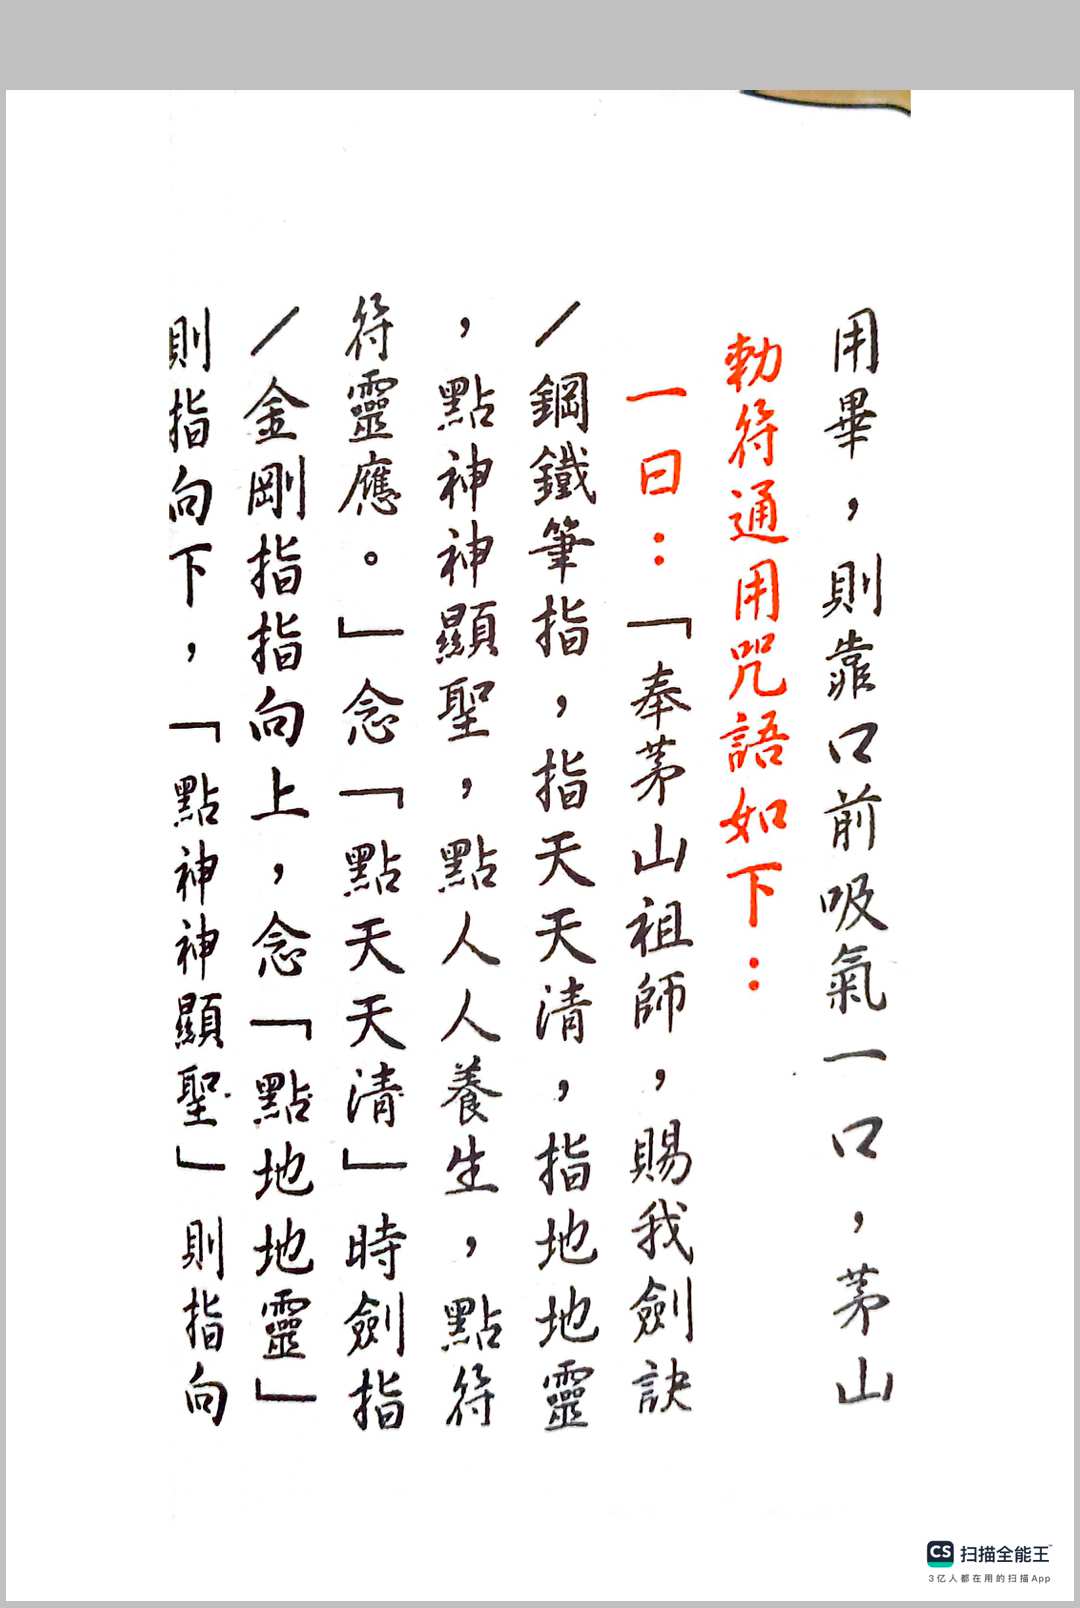 用畢，則靠口前吸氣一口，茅山
勅符通用咒語如下：
一曰：「奉茅山祖師，賜我劍訣
／鋼鐵筆指，指天天清，指地地靈
，點神神顯聖，點人人養生，點符
符靈應。」念「點天天清」時劍指
／金剛指指向上，念「點地地靈」
則指向下，「點神神顯聖」則指向
CS 扫描全能王
3亿人都在用的扫描App